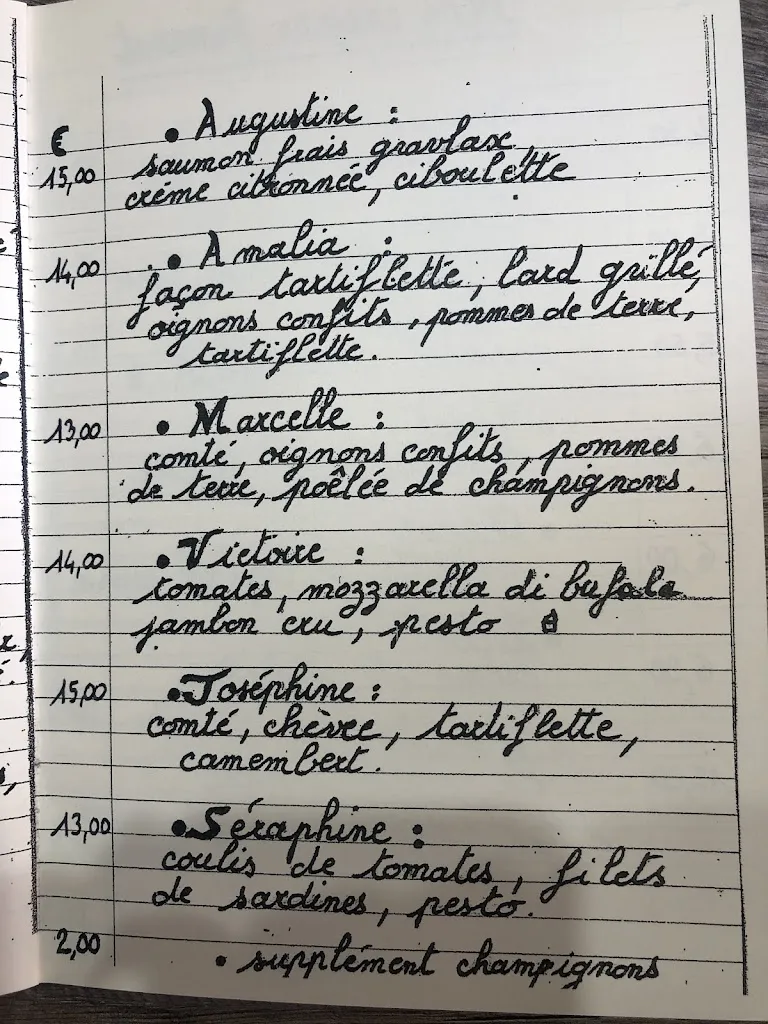 €
• Augustine :
15,00 saumon frais gravlax,
créme citronnée, ciboulette
• Amalia :
14,00 façon tartiflette, lard grillé,
oignons confits, pommes de terre,
tartiflette.
• Marcelle :
13,00 comté, oignons confits, pommes
de terre, poêlée de champignons.
• Victoire :
14,00 tomates, mozzarella di bufala
jambon cru, pesto
• Joséphine :
15,00 comté, chèvre, tartiflette,
camembert.
• Séraphine :
13,00 coulis de tomates, filets
de sardines, pesto.
2,00 • supplément champignons